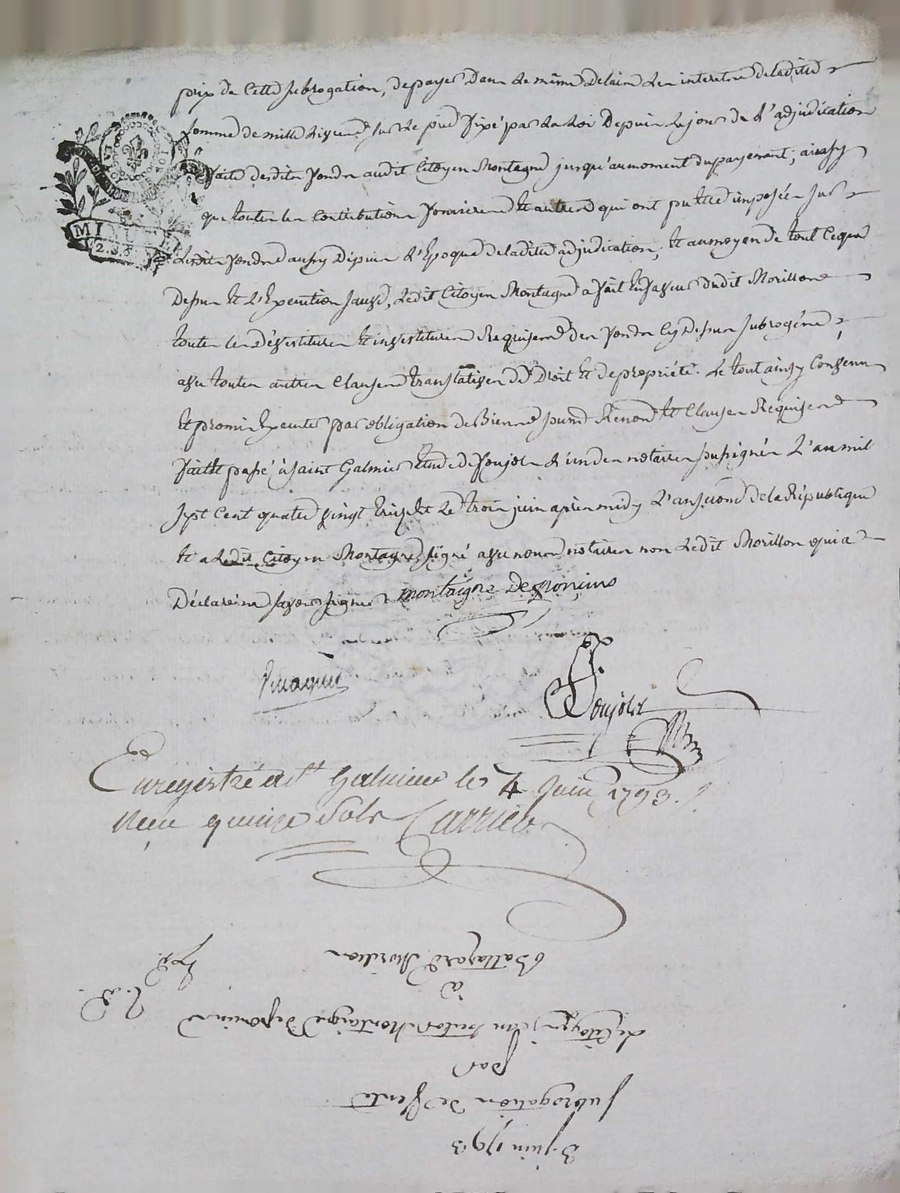 prix de cette subrogation, de payer dans le même delain les interetes de laditte
somme de mille livres sur le pied fixé par la Loi Depuis le jour de l'adjudication
faite desdits fonds audit Citoyen Montagne jusqu'au moment du payement; ainsy
que toutes les contributions foncieres et autres qui ont pu être imposées sur
lesdits fonds aussy Depuis l'Epoque de laditte adjudication, et au moyen de tout ce que
Dessus et l'Execution sauve, ledit Citoyen Montagne a fait en faveur dudit Morillon
toutes les dévestitures et investitures Requises des fonds cy Dessus subrogés
avec toutes autres clauses translatives de Droit et de propriété. Le tout ainsy convenu
et promis Executer par obligation de Biens, soumis Renonc et clauses Requises
fait et passé à Saint Galmier Etude de Soujol l'un des notaires soussignés L'an mil
sept cent quatre vingt treize et le trois juin après midy l'an second de la République
et a ledit Citoyen Montagne signé avec nous notaires non ledit Morillon qui a
Déclaré ne savoir signer montaigne De poncins
Soujol
Enregistré a st Galmier le 4 Juin 1793.
Reçu quinze Sols Carrier
3 juin 1793
Subrogation de vente
par
le Citoyen jean Montaigne Deponcins
à
Baltazard Morillon